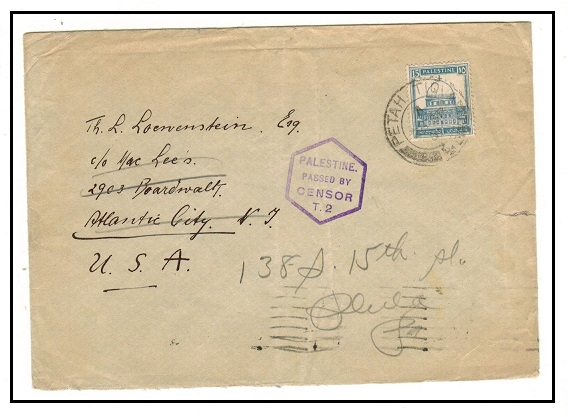 15 PALESTINE
PETAH TIQ
Th. L. Loewenstein. Esq.
c/o Mac Lee's.
2903 Boardwalk.
Atlantic City. N. J.
U. S. A.
PALESTINE.
PASSED BY
CENSOR
T.2
138 S. 15th St.
Phila
Pa